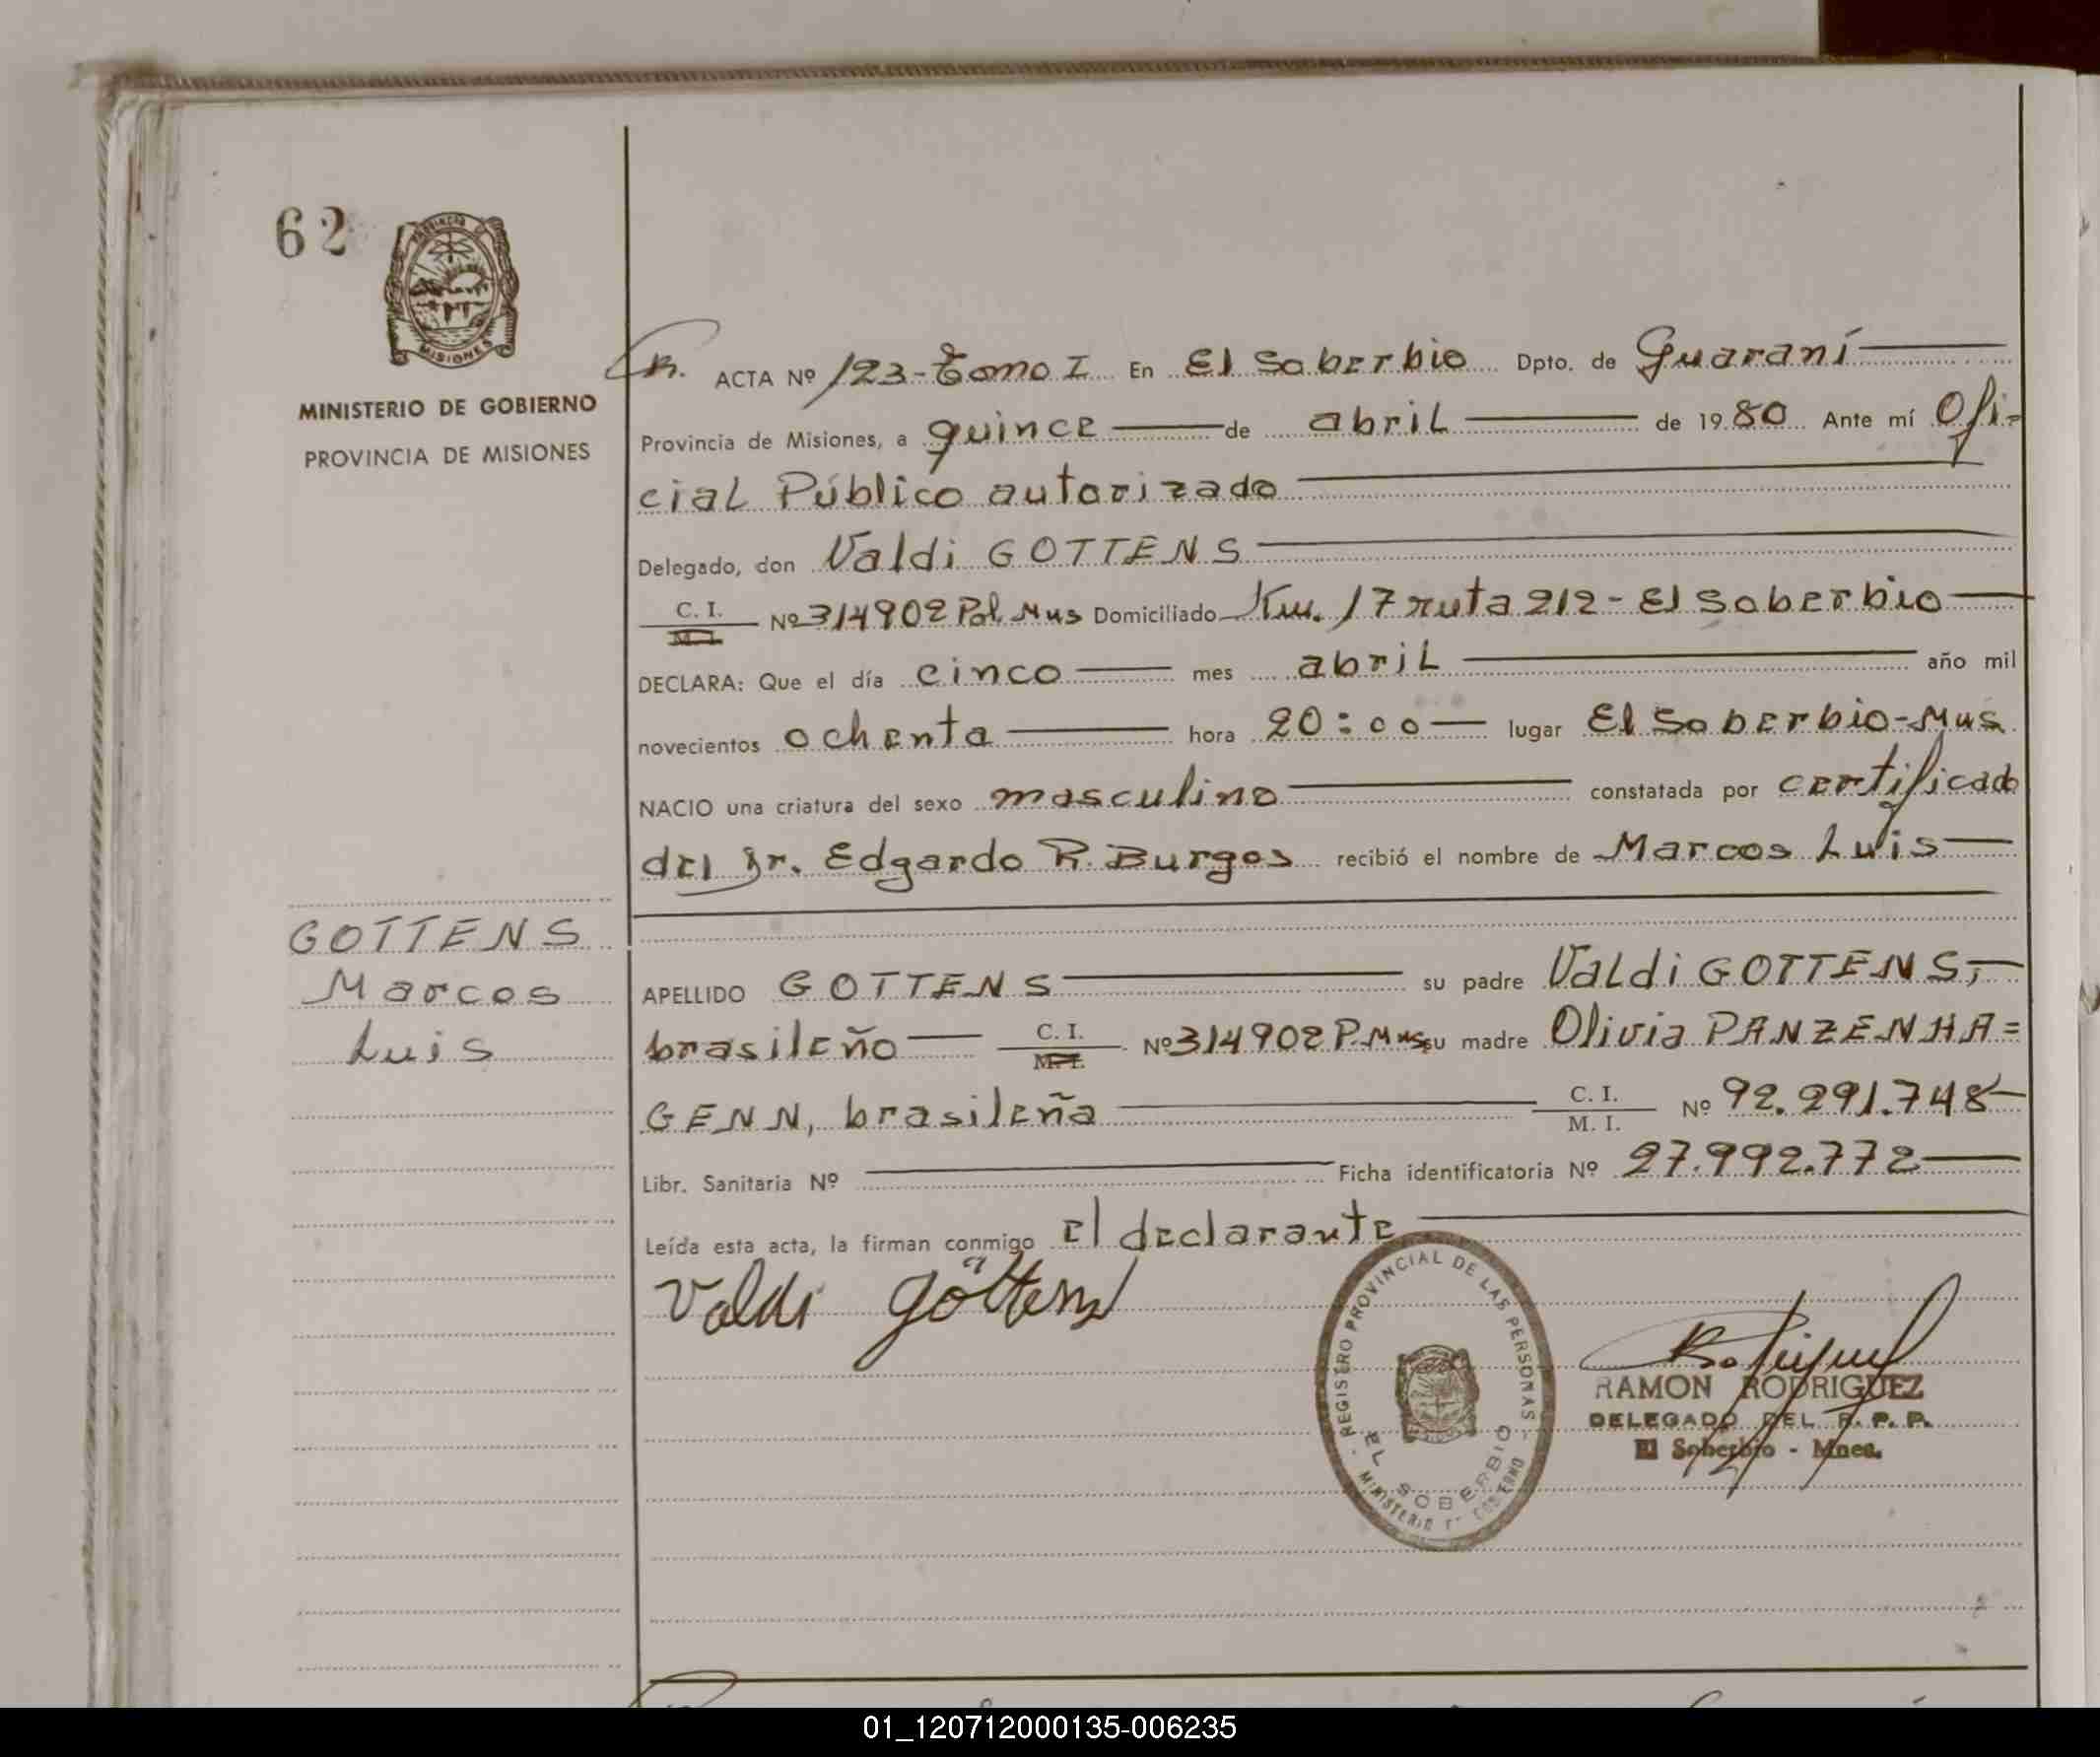 62
PROVINCIA DE
MISIONES
MINISTERIO DE GOBIERNO
PROVINCIA DE MISIONES
R. ACTA Nº 123-Tomo I En El Soberbio Dpto. de Guaraní
Provincia de Misiones, a quince de abril de 1980 Ante mí Ofi-
cial Público autorizado
Delegado, don Valdi GOTTENS
C. I.
M. I.
Nº 314902 Pol. Mns Domiciliado Km. 17 ruta 212 - El Soberbio
DECLARA: Que el día cinco mes abril año mil
novecientos ochenta hora 20:00 lugar El Soberbio-Mns
NACIO una criatura del sexo masculino constatada por certificado
del Dr. Edgardo R. Burgos recibió el nombre de Marcos Luis
GOTTENS
Marcos
Luis
APELLIDO GOTTENS su padre Valdi GOTTENS,
brasileño C. I. M. I. Nº 314902 P. Mns, su madre Olivia PANZENHA=
GENN, brasileña C. I. M. I. Nº 92.291.748
Libr. Sanitaria Nº Ficha identificatoria Nº 27.992.772
Leída esta acta, la firman conmigo el declarante
Valdi göttens
REGISTRO PROVINCIAL DE LAS PERSONAS
EL SOBERBIO
MINISTERIO DE GOBIERNO
RAMON RODRIGUEZ
DELEGADO DEL R. P. P.
El Soberbio - Mnes.
01_120712000135-006235